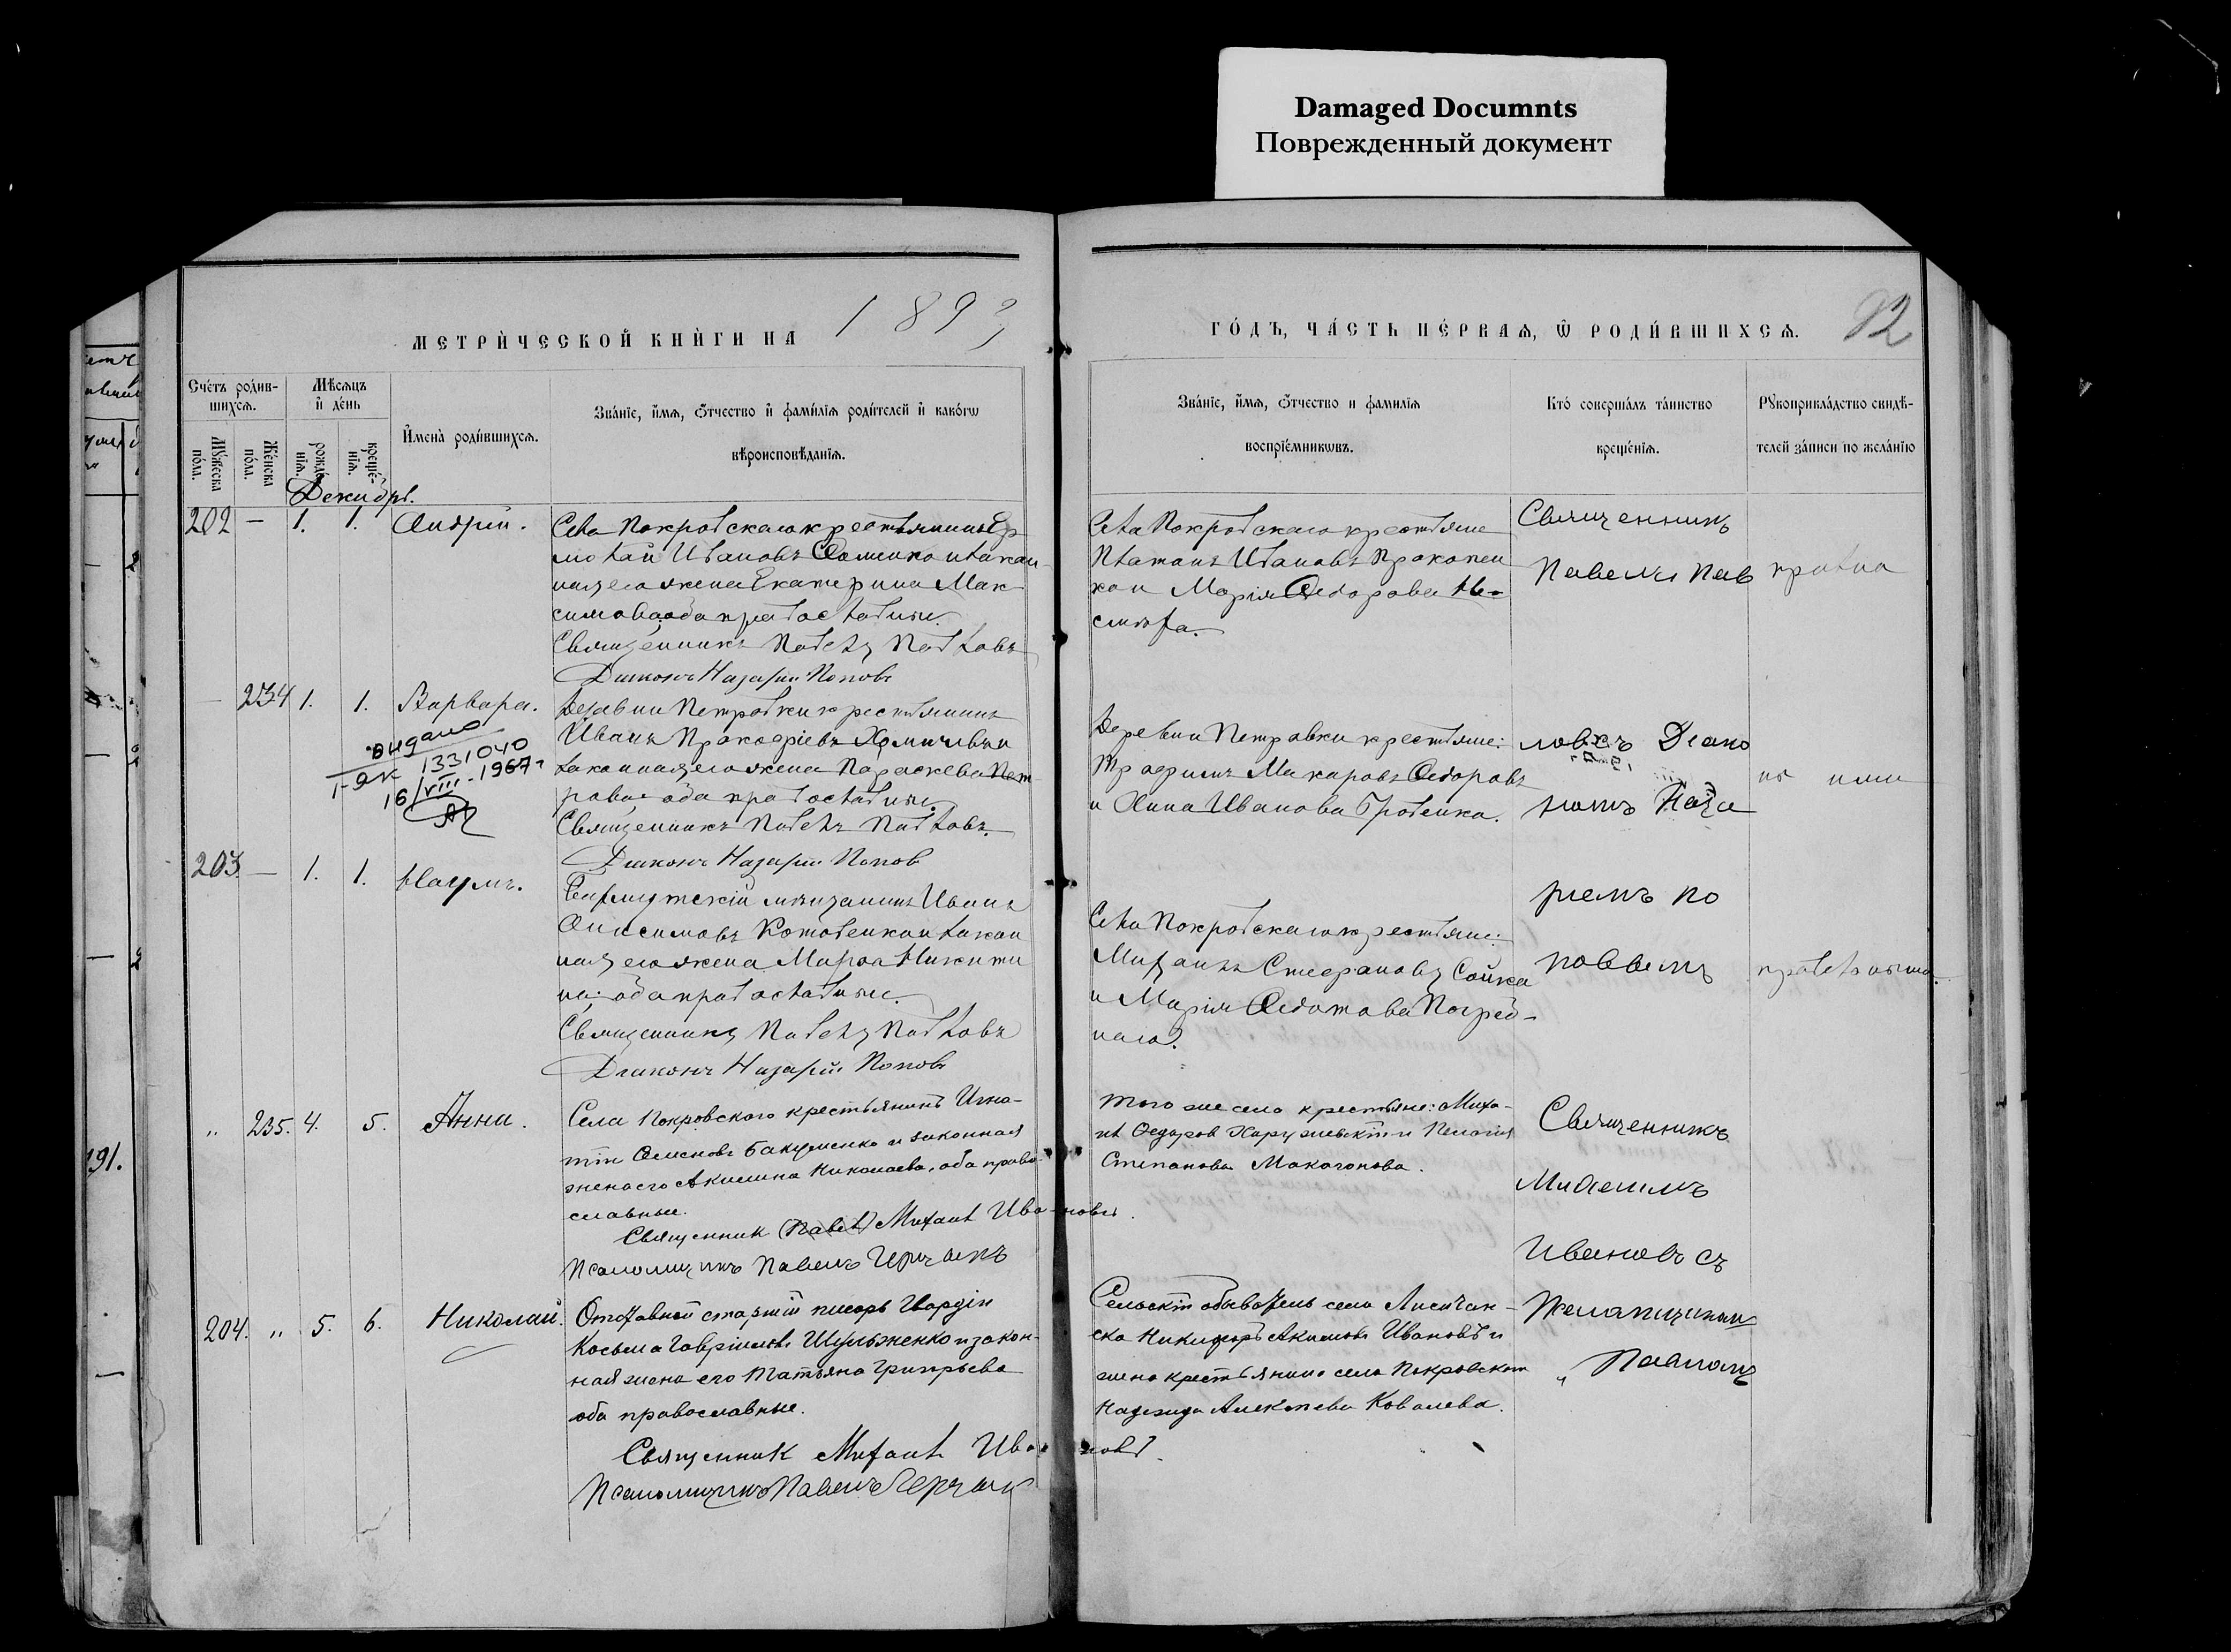 Damaged Documnts
Поврежденный документ
МЕТРИ́ЧЕСКОЙ КНИ́ГИ НА 1893
ГО́ДЪ, ЧА́СТЬ ПЕ́РВАѦ, Ѿ РОДИ́ВШИХСѦ. 92
Сче́тъ роди́вшихсѧ.
Мꙋ́жеска по́ла.
Же́нска по́ла.
Мѣ́сѧцъ и҆ де́нь
рожде́нїѧ.
креще́нїѧ.
И҆мена̀ роди́вшихсѧ.
Зва́нїе, и҆́мѧ, ѻ҆́тчество и҆ фами́лїѧ роди́телей и҆ како́гѡ
вѣроисповѣ́данїѧ.
Зва́нїе, и҆́мѧ, ѻ҆́тчество и фами́лїѧ
воспрїе́мникѡвъ.
Кто̀ соверша́лъ та́инство
креще́нїѧ.
Рꙋкоприкла́дство свидѣ́-
телей за́писи по жела́нїю
Декабрь.
202 — 1. 1. Андрей.
Села Покровскаго крестьянинъ Ер-
молай Ивановъ и закон-
ная его жена Екатерина Мак-
симова, оба православные.
Священникъ Павелъ Павловъ
Диаконъ Назарій Поповъ
Села Покровскаго крестьяне
Платонъ Ивановъ Прокопен
ко и Марія Федорова
Священникъ
Павелъ Пав
— 234 1. 1. Варвара.
видано
І-ЯК 1331040
16/VIII-1967
Деревни Петровки крестьянинъ
Иванъ Прокофіевъ и
законная его жена Параскева Пет-
рова оба православные.
Священникъ Павелъ Павловъ.
Диаконъ Назарій Попов
Деревни Петровки крестьяне:
Трофимъ Макаровъ Федоровъ
и Анна Иванова
ловъ съ Діако
номъ Наза
203. — 1. 1. Наумъ.
мѣщанинъ Иванъ
Онисимовъ Котовенко и закон
ная его жена Марфа Никити
на; оба православные.
Священникъ Павелъ Павловъ
Диаконъ Назарій Поповъ
Села Покровскаго крестьяне:
Михаилъ Стефановъ Сойка
и Марія Федотова Погреб-
ріемъ По
повымъ
" 235. 4. 5. Анна.
Села Покровского крестьянинъ Игна-
тій Семеновъ Бакуменко и законная
жена его Акилина Николаева, оба право-
славные.
Священник (Павел) Михаил Ивановъ.
Псаломщикъ Павелъ
Того же села крестьяне: Миха-
ил Федоров и Пелагия
Степанова Макогонова.
Священникъ
Михаилъ
Ивановъ съ
204. " 5. 6. Николай.
Отставной старшій писарь Гвардіи
Косьма Гавріиловъ Шульженко и закон-
ная жена его Татьяна Григорьева
оба православные.
Священник Михаил Ивановъ.
Псаломщикъ Павелъ
Сельскій обыватель села Лисичан-
ска Никифоръ Акимовъ Ивановъ и
жена крестьянина села Покровскаго
Надежда Алексѣева Ковалева.
Псаломщикомъ
" Павломъ
191.